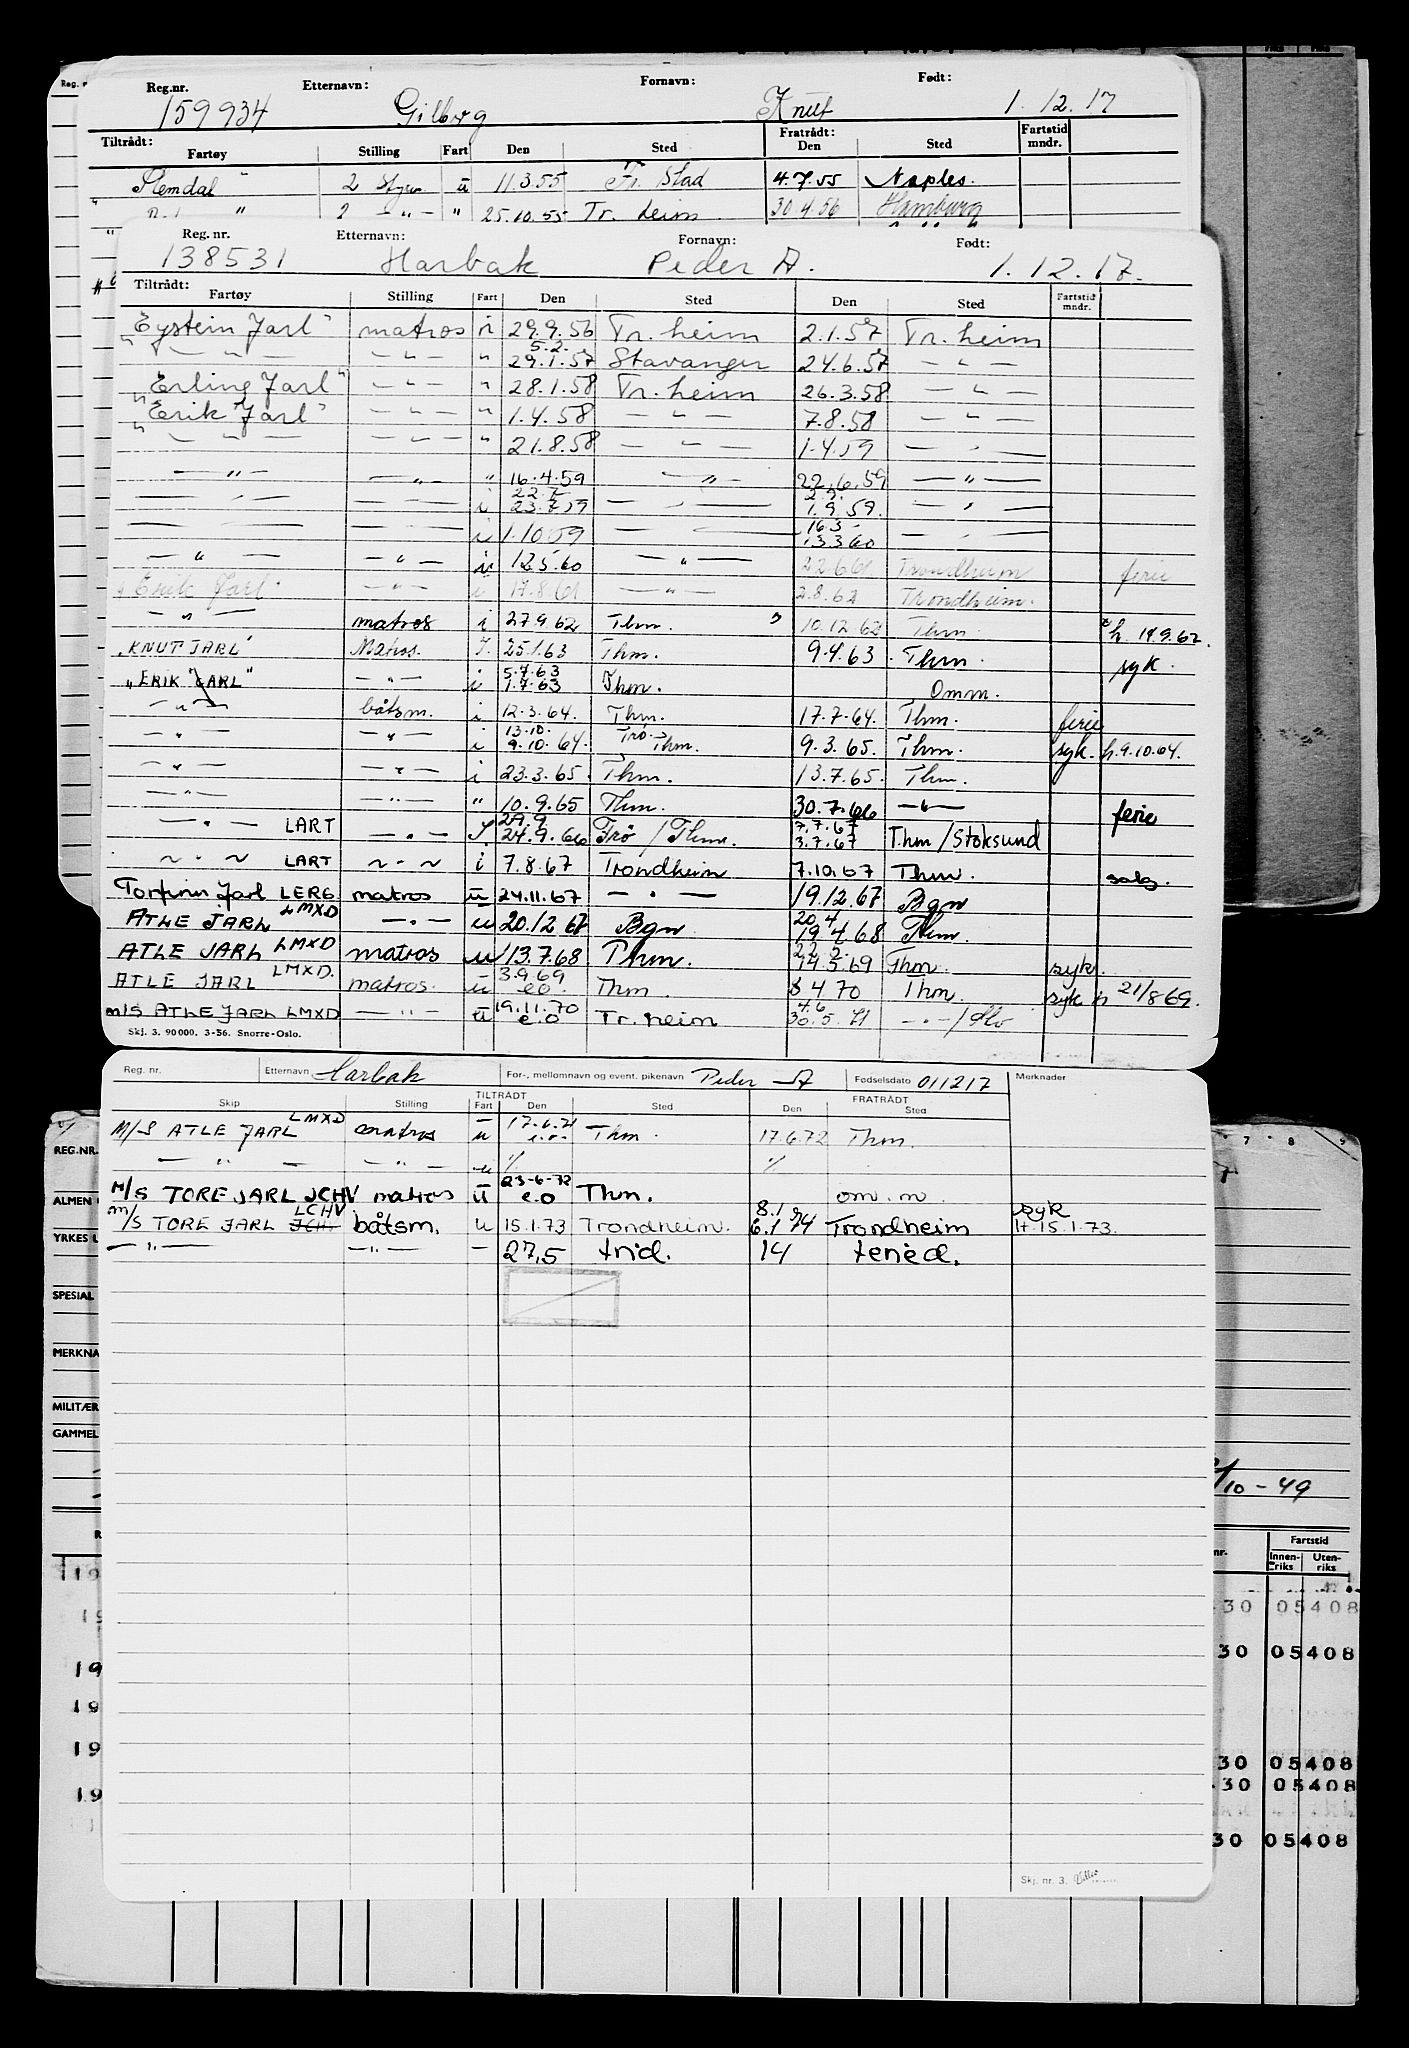 Reg.nr. Etternavn: Fornavn: Født:
159934 Gilberg Knut 1.12.17
Tiltrådt: Fratrådt: Fartstid mndr.
Fartøy Stilling Fart Den Sted Den Sted
2 Styrm ü 11.3.55 Fr. Stad 4.7.55 Naples.
" 2 -"- " 25.10.55 Tr. heim 30 4.56 Hamburg
Reg. nr. Etternavn: Fornavn: Født:
138531 Harbak Peder A. 1.12.17.
Tiltrådt:
Fartøy Stilling Fart Den Sted Den Sted Fartstid mndr.
"Eystein Jarl" matros i 29.9.56 Tr. heim 2.1.57 Tr. heim
" -"- -"- " 5.2. 29.1.57 Stavanger 24.6.57 -"-
"Erling Jarl" -"- " 28.1.58 Tr. heim 26.3.58 -"-
"Erik Jarl" -"- " 1.4.58 -"- 7.8.58 -"-
-"- -"- " 21.8.58 -"- 1.4.59 -"-
-"- -"- " 16.4.59 -"- 22.6.59 -"-
-"- -"- i 22.7. 23.7.59 -"- 2.9. 1.9.59. -"-
-"- -"- i 1.10.59 -"- 16.3 13.3.60 -"-
-"- -"- i 12.5.60 -"- 22.6.61 Trondheim ferie
"Erik Jarl" -"- i 17.8.61 -"- 2.8.62 Trondheim.
-"- matros i 27.9.62 Thm. 10.12.62 Thm. h. 19.9.62.
"KNUT JARL" Matros. I. 25.1.63 Thm. 9.4.63 Thm. syk.
"ERIK JARL" -"- i 5.7.63 1.7.63 Thm. Omm.
-"- båtsm. i 12.3.64. Thm. 17.7.64. Thm. ferie
-"- -"- i 13.10. 9.10.64. Trø. Thm. 9.3.65. Thm. syk. h. 9.10.64.
-"- -"- i 23.3.65. Thm. 13.7.65. Thm.
-"- -"- " 10.9.65 Thm. 30.7.66 -"- ferie
-"- LART -"- I 29.9 24.9.66 Trø / Thm. 7.7.67 3.7.67 Thm/Stoksund
-"- LART -"- i 7.8.67 Trondheim 7.10.67 Thm. salg.
Torfinn Jarl LERG matros ü 24.11.67 -"- 19.12.67 Bgn
ATLE JARL LMXD -"- u 20.12.67 Bgn 20.4 19.4.68 Thm.
ATLE JARL LMXD matros u 13.7.68 Thm. 22.2. Thm. syk.
ATLE JARL LMXD. matros. ü 3.9.69 e.o. Thm. 8 4 70 Thm. syk h 21/8 69.
m/s ATLE JARL LMXD -"- ü 19.11.70 e.o Tr. heim 4.6 30.5.71 -"-
Skj. 3. 90 000. 3-56. Snorre-Oslo.
Reg. nr. Etternavn Harbak For-, mellomnavn og event. pikenavn Peder A Fødselsdato 011217 Merknader
TILTRÅDT FRATRÅDT
Skip Stilling Fart Den Sted Den Sted
M/S ATLE JARL LMXD matros ü 17.6.71 e.o. Thm. 17.6.72 Thm.
-"- -"- u % %
M/S TORE JARL JCHV matros ü 23-6-72 e.o Thm. om.m.
m/S TORE JARL LCHV båtsm. u 15.1.73 Trondheim. 8.1 6.1 74 Trondheim syk H. 15.1.73.
-"- -"- - 27,5 tnd. 14 tened.
Skj. nr. 3.
REG.NR.
ALMEN
YRKES
SPESIAL
MERKNA
MILITÆR
GAMMEL
/10 - 49
nr. Fartstid
Innen-riks Uten-riks
30 05408
30 05408
30 05408
30 05408
30 05408
19
19
19
19
19